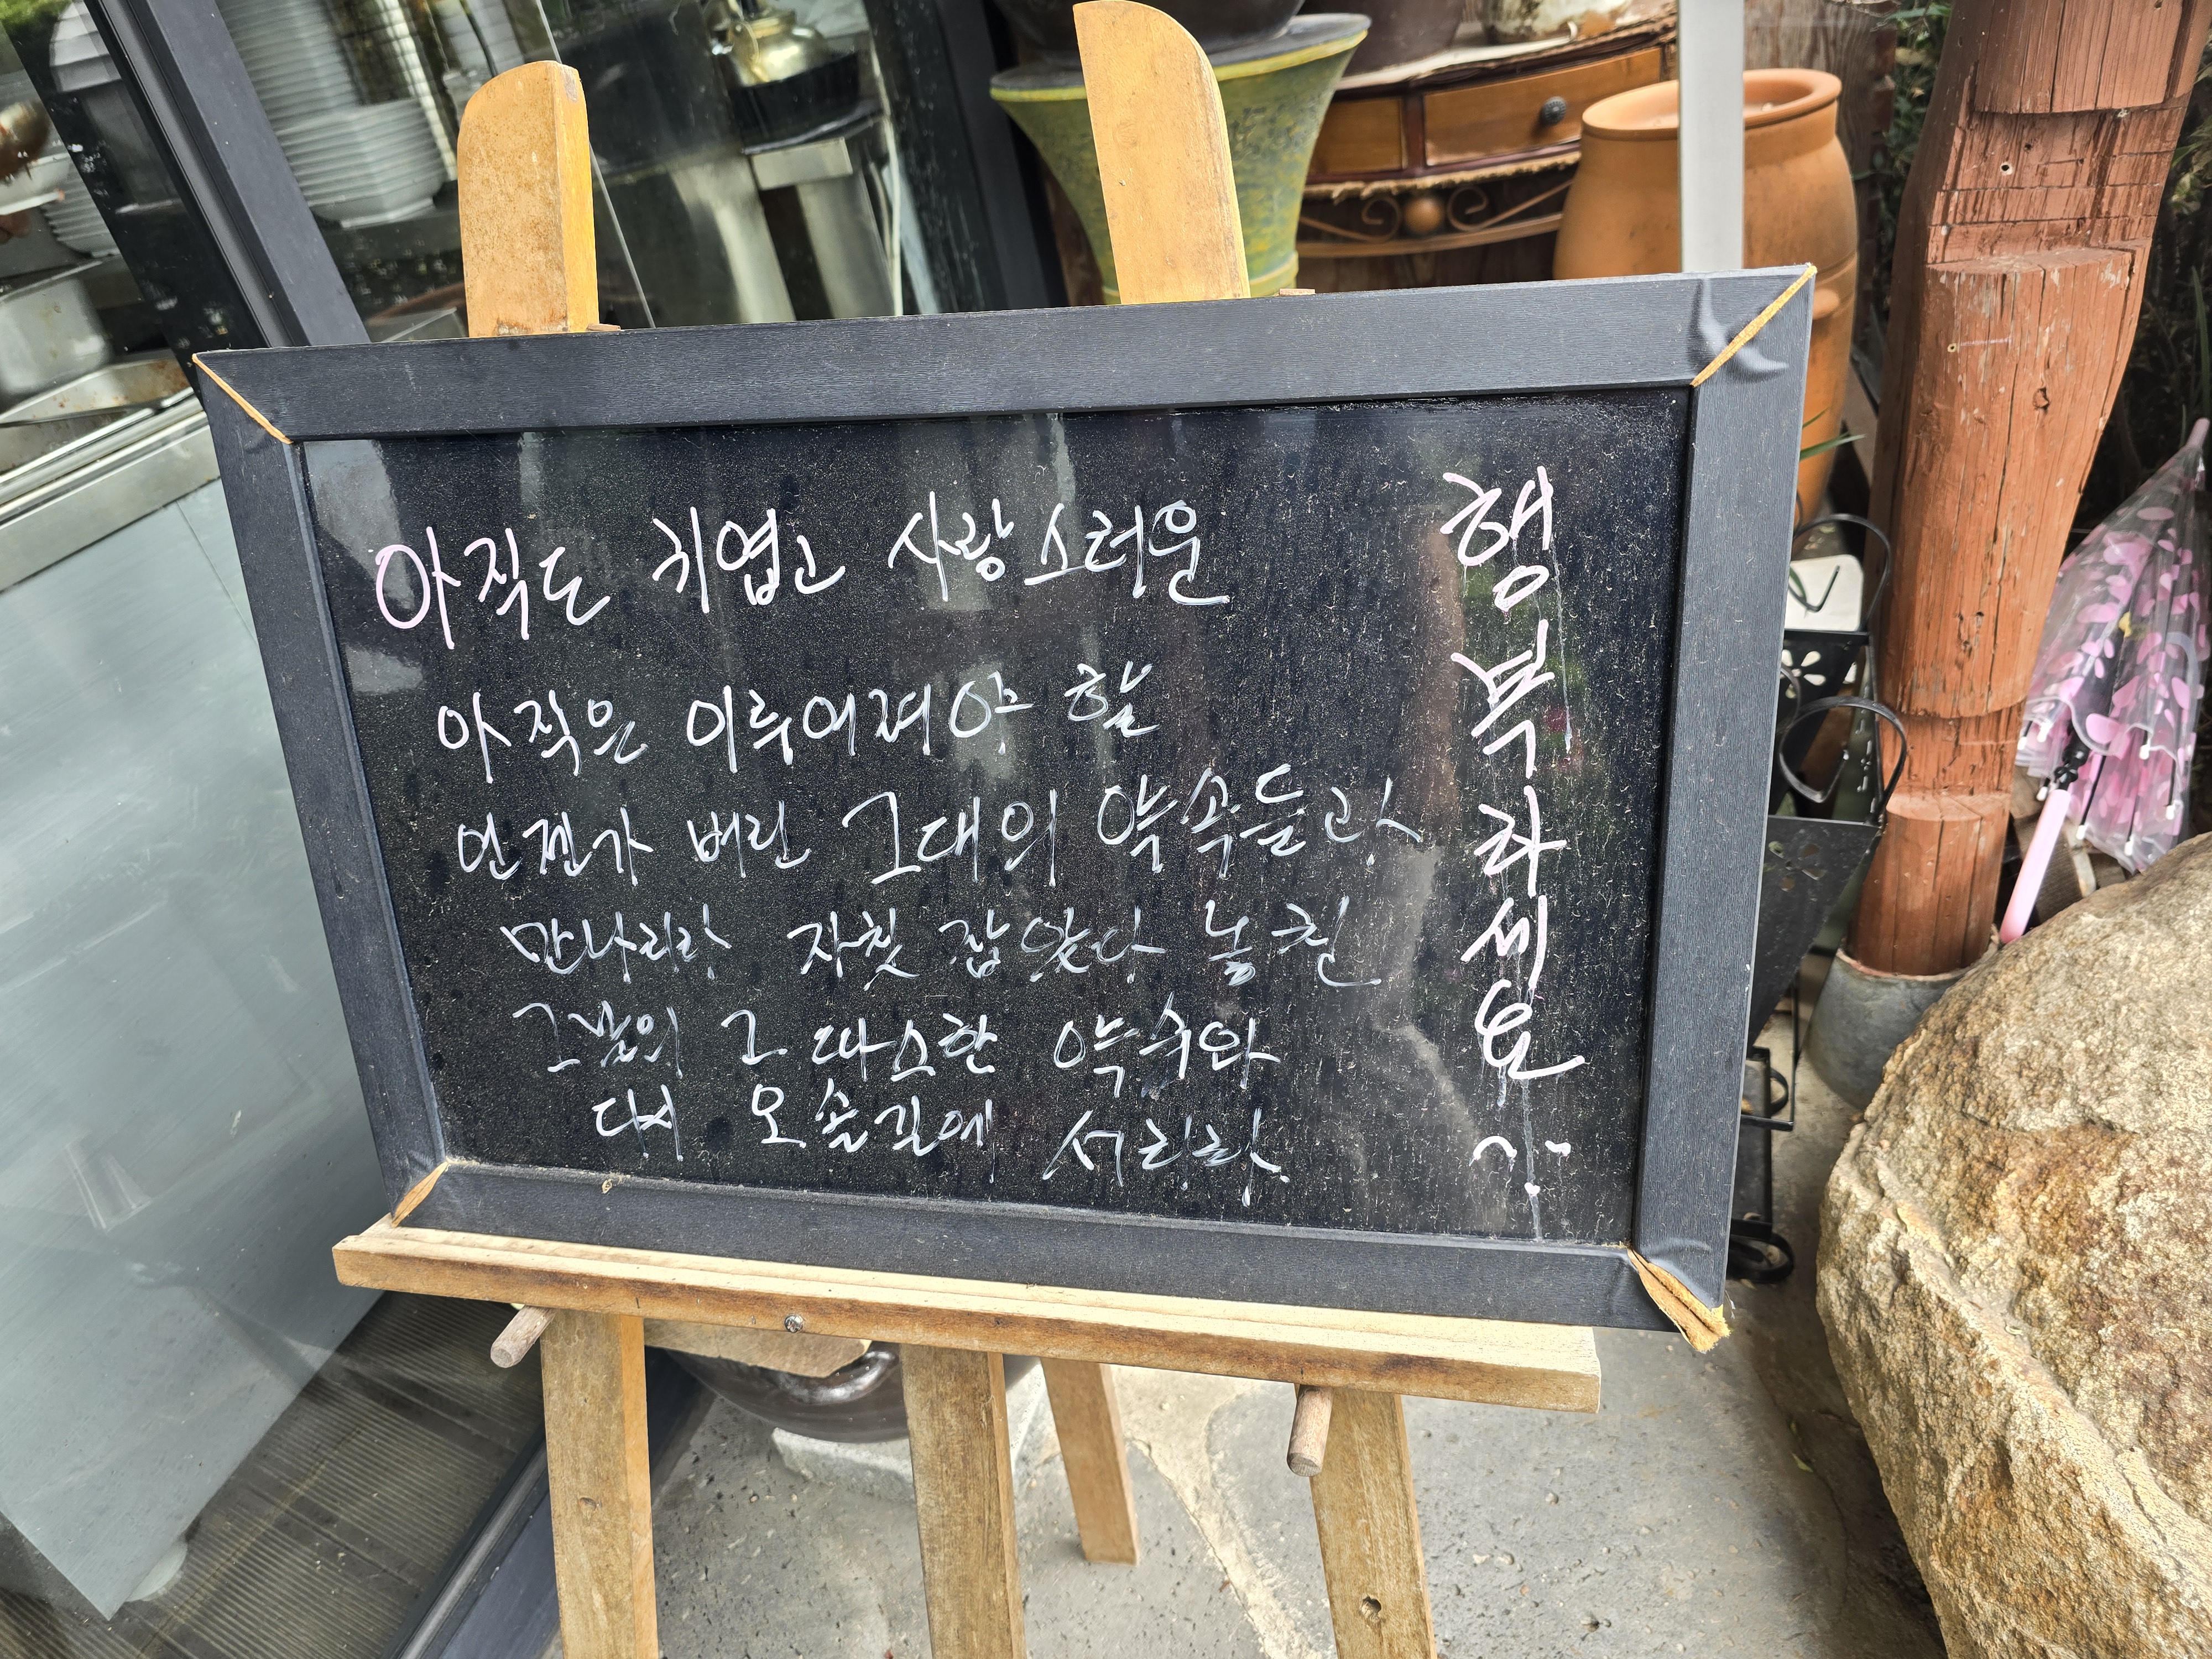 아직도 귀엽고 사랑스러운
아직은 이루어져야 할
언젠가 버린 그대의 약속들과
만나리라 자칫 잡았다 놓친
그날의 그 따스한 악수와
다시 오솔길에 서리라
행복하세요